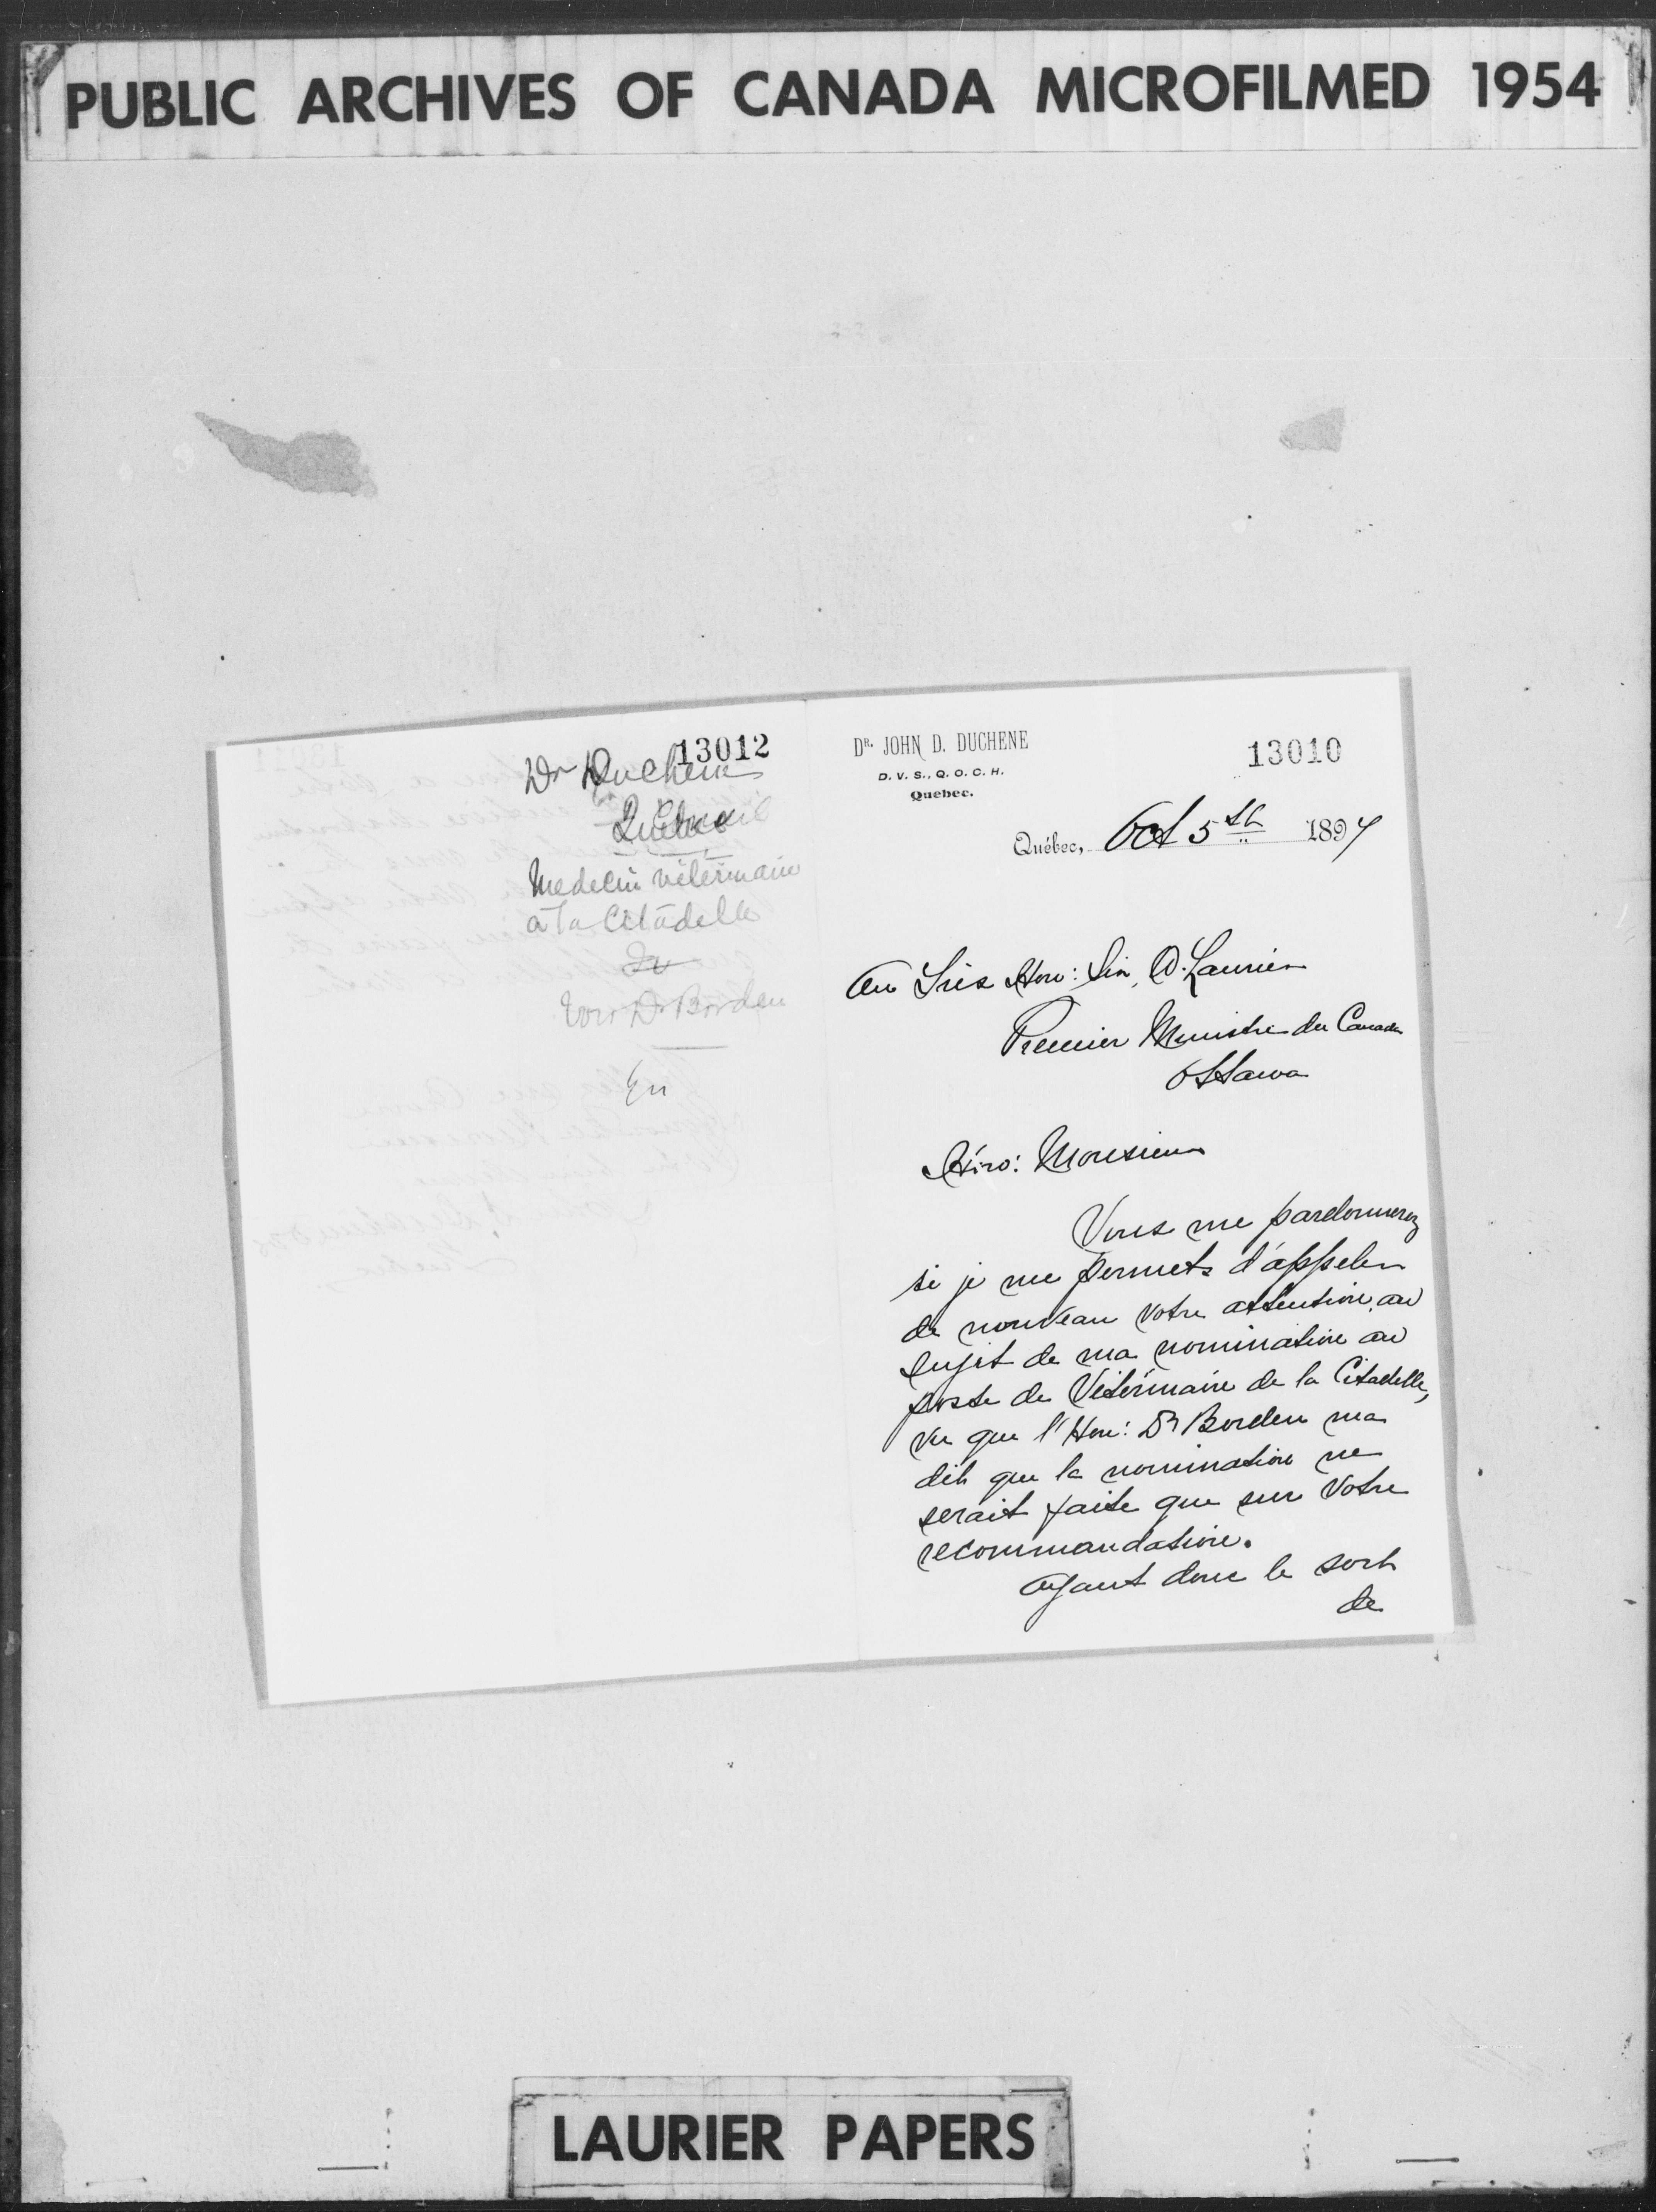 PUBLIC ARCHIVES OF CANADA MICROFILMED 1954
13012
Dr Duchene
Québec
Medecin vétérinaire
à la Citadelle
Voir Dr Borden
En
DR. JOHN D. DUCHENE
D. V. S., Q. O. C. H.
Quebec.
13010
Québec, Oct 5th 1897
Au Très Hon: Sir, W. Laurier
Premier Ministre du Canada
Ottawa
Hon: Monsieur
Vous me pardonnerez
si je me permets d'appeler
de nouveau votre attention, au
sujet de ma nomination au
poste de Vétérinaire de la Citadelle,
vu que l'Hon: Dr Borden ma
dit que la nomination ne
serait faite que sur votre
recommandation.
Ayant donc le sort
de
LAURIER PAPERS